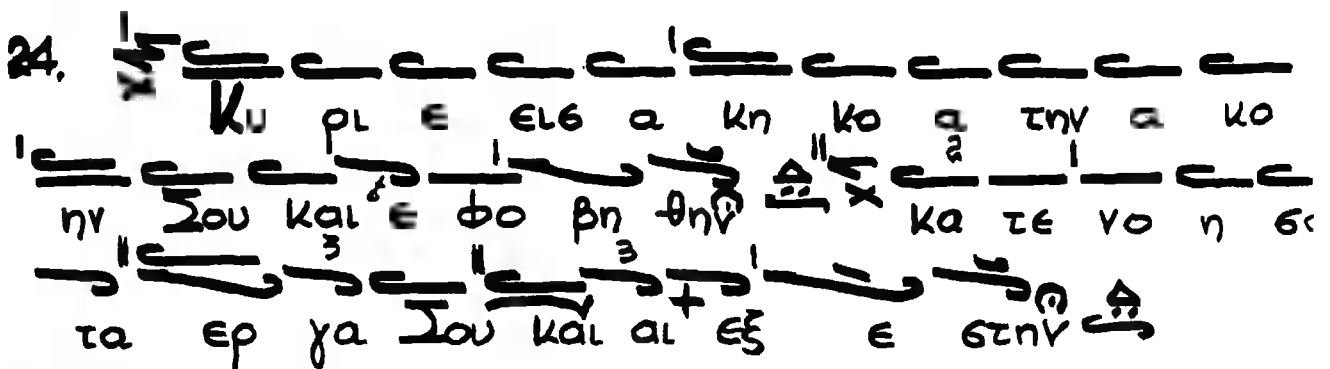 24. Κυ ρι ε εισ α κη κο α την α κο
ην Σου και ε φο βη θην κα τε νο η σ
τα ερ γα Σου και αι εξ ε στην